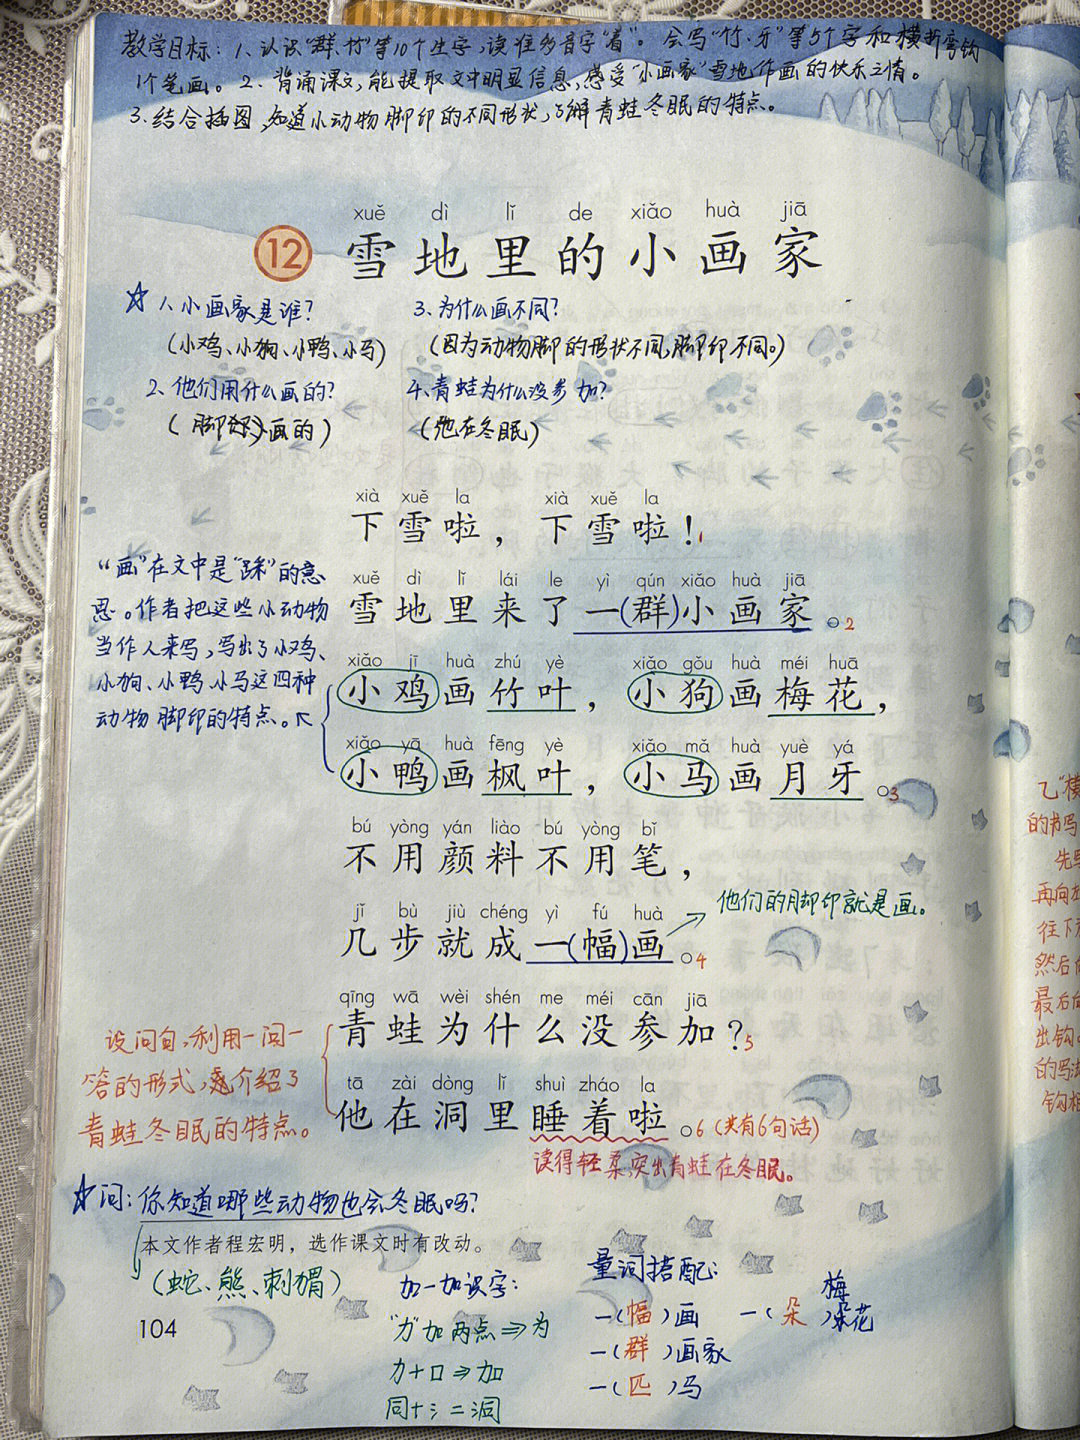 教学目标：1、认识“群、竹”等10个生字，读准多音字“着”。会写“竹、牙”等5个字和横折弯钩
1个笔画。2、背诵课文，能提取文中明显信息，感受“小画家”雪地作画的快乐之情。
3、结合插图，知道小动物脚印的不同形状，了解青蛙冬眠的特点。
xuě dì lǐ de xiǎo huà jiā
12 雪地里的小画家
☆ 1、小画家是谁？
（小鸡、小狗、小鸭、小马）
2、他们用什么画的？
（脚印画的）
3、为什么画不同？
（因为动物脚的形状不同，脚印不同。）
4、青蛙为什么没参加？
（他在冬眠）
xià xuě la xià xuě la
下雪啦，下雪啦！1
xuě dì lǐ lái le yì qún xiǎo huà jiā
雪地里来了一(群)小画家。2
xiǎo jī huà zhú yè xiǎo gǒu huà méi huā
小鸡画竹叶，小狗画梅花，
xiǎo yā huà fēng yè xiǎo mǎ huà yuè yá
小鸭画枫叶，小马画月牙。3
bú yòng yán liào bú yòng bǐ
不用颜料不用笔，
jǐ bù jiù chéng yì fú huà
几步就成一(幅)画。4
他们的脚印就是画。
qīng wā wèi shén me méi cān jiā
青蛙为什么没参加？5
tā zài dòng lǐ shuì zháo la
他在洞里睡着啦。6（共有6句话）
读得轻柔，突出青蛙在冬眠。
“画”在文中是“踩”的意
思。作者把这些小动物
当作人来写，写出了小鸡、
小狗、小鸭、小马这四种
动物脚印的特点。
设问句，利用一问一
答的形式，介绍了
青蛙冬眠的特点。
☆问：你知道哪些动物也会冬眠吗？
本文作者程宏明，选作课文时有改动。
（蛇、熊、刺猬）
104
加一加识字：
“力”加两点⇒为
力+口⇒加
同+氵=洞
量词搭配：
一（幅）画 一（朵）梅花
一（群）画家
一（匹）马
乙“横
的书写
先
再向
往下
然后
最后向
出钩。
的写法
钩